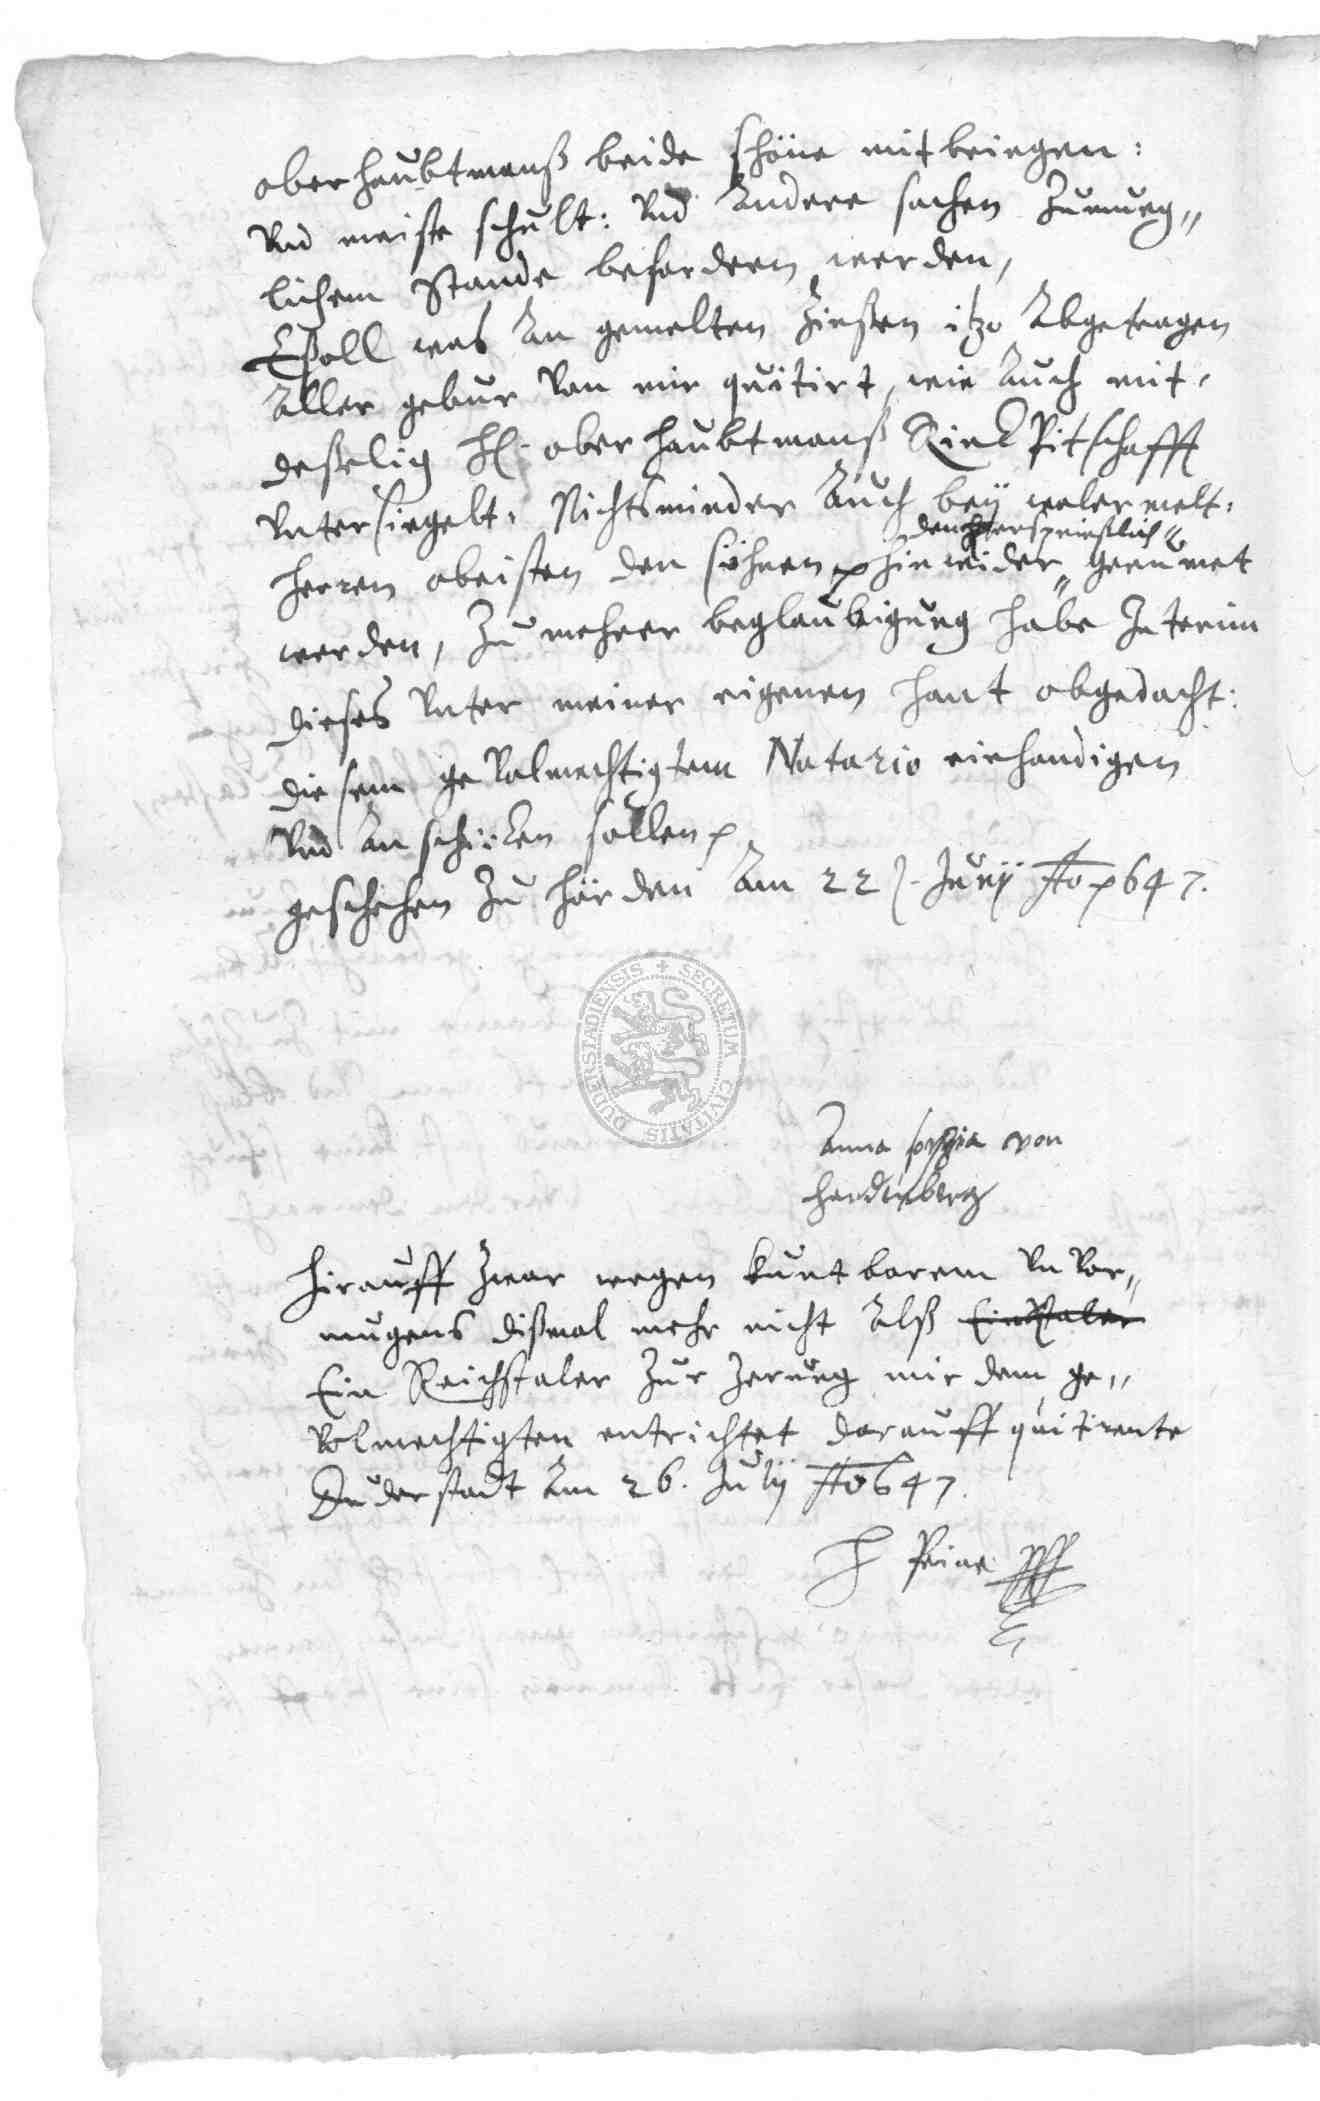 oberhaubtmanß beide Söhne mit bringen:
Vnd meiste schult: Vnd Andere sachen Zumüg„
lichem Stande befordern werden,
Eß soll was An gemelten Zinßen itzo Abgetragen
Aller gebur Von mir quitirt, wie Auch mit
deßelig H. oberhaubtmanß Rink Pitschafft
Vntersiegelt, Nichtsminder Auch bey
denh ersprießlich
herren obristen den söhnen hinwider geeumet
werden, Zu mehrer beglaubigung habe Interim
dieses Vnter meiner eigenen hant obgedacht:
diesem geVolmechtigtem Notario einhandigen
Vnd An schicken sollen
geschehen Zu hörden Am 22 Juny Ao 647.
DUDERSTADIENSIS + SECRETUM CIVITATIS
Anna sophia von
hardenberg
Hirauff Zwar wegen kuntbarem VnVor„
mugens dißmal mehr nicht Alß Ein Taler
Ein Reichstaler Zur Zerung mir dem ge„
Volmechtigten entrichtet darauff quitirente
Duderstadt Am 26. July Ao 647.
H Peine